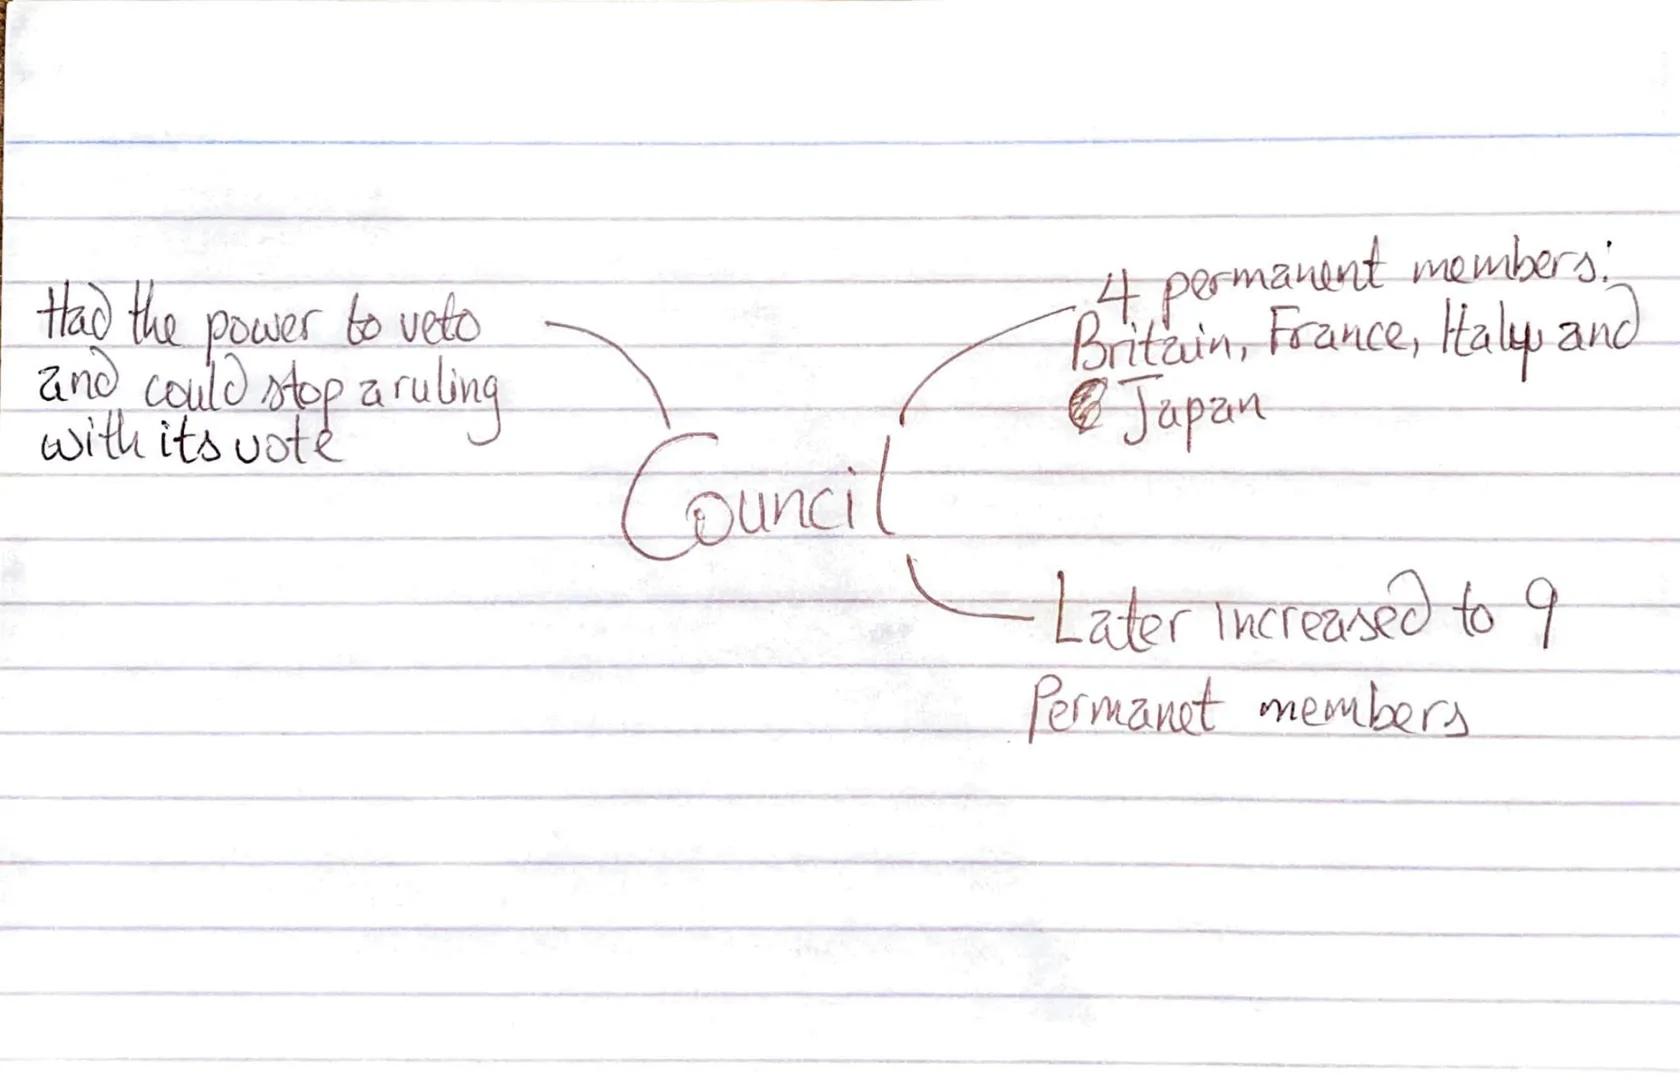 Had the power to veto
and could stop a ruling
with its vote
Council
4 permanent members:
Britain, France, Italy and
Japan
Later increased to 9
Permanet members